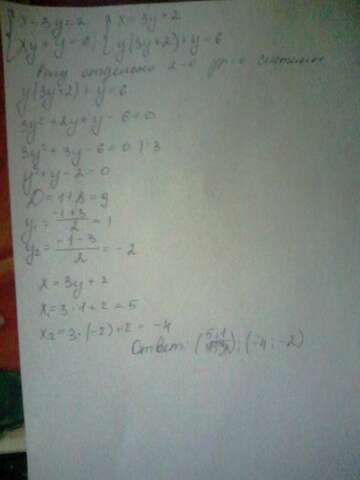 { x - 3y = 2 { x = 3y + 2
{ xy + y = 6; { y(3y+2) + y = 6
отдельно 2-е ур-е системы
y(3y+2) + y = 6
3y² + 2y + y - 6 = 0
3y² + 3y - 6 = 0 | : 3
y² + y - 2 = 0
D = 1 + 8 = 9
y₁ = (-1+3)/2 = 1
y₂ = (-1-3)/2 = -2
x = 3y + 2
x₁ = 3 · 1 + 2 = 5
x₂ = 3 · (-2) + 2 = -4
Ответ: (5; 1); (-4; -2)